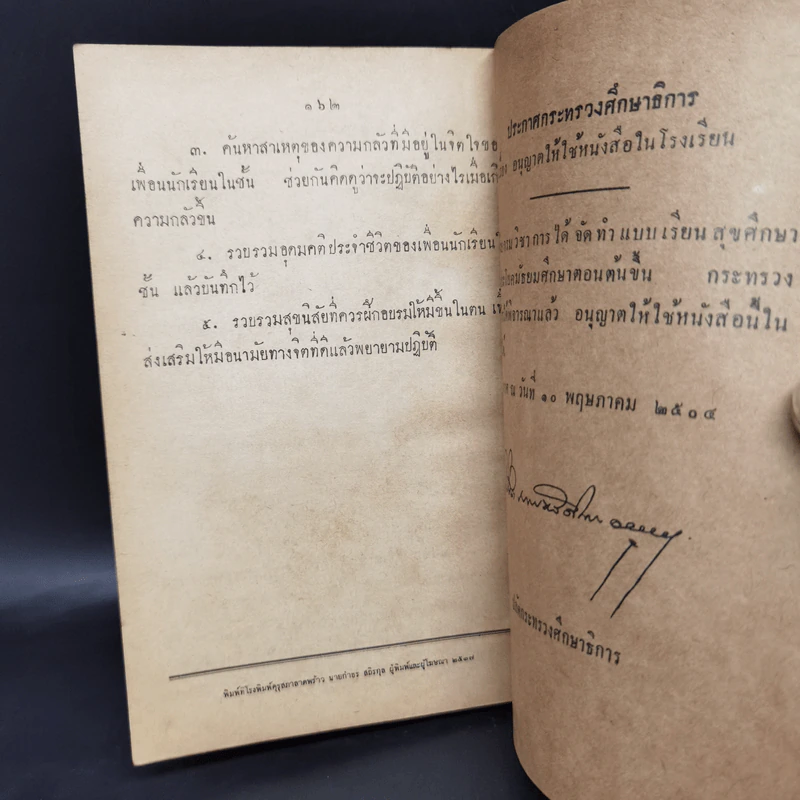 ๑๖๒
๓. ค้นหาสาเหตุของความกลัวที่มีอยู่ในจิตใจขอ
เพื่อนนักเรียนในชั้น ช่วยกันคิดดูว่าจะปฏิบัติอย่างไรเมื่อเกิ
ความกลัวขึ้น
๔. รวบรวมอุดมคติประจำชีวิตของเพื่อนนักเรียน
ชั้น แล้วบันทึกไว้
๕. รวบรวมสุขนิสัยที่ควรฝึกอบรมให้มีขึ้นในตน เพื่
ส่งเสริมให้มีอนามัยทางจิตที่ดีแล้วพยายามปฏิบัติ
พิมพ์ที่โรงพิมพ์คุรุสภาลาดพร้าว นายกำธร สถิรกุล ผู้พิมพ์และผู้โฆษณา ๒๕๑๗
ประกาศกระทรวงศึกษาธิการ
อนุญาตให้ใช้หนังสือในโรงเรียน
วิชาการได้จัดทำแบบเรียนสุขศึกษา
มัธยมศึกษาตอนต้นขึ้น กระทรวง
พิจารณาแล้ว อนุญาตให้ใช้หนังสือนี้ใน
ณ วันที่ ๑๐ พฤษภาคม ๒๕๑๔
กระทรวงศึกษาธิการ